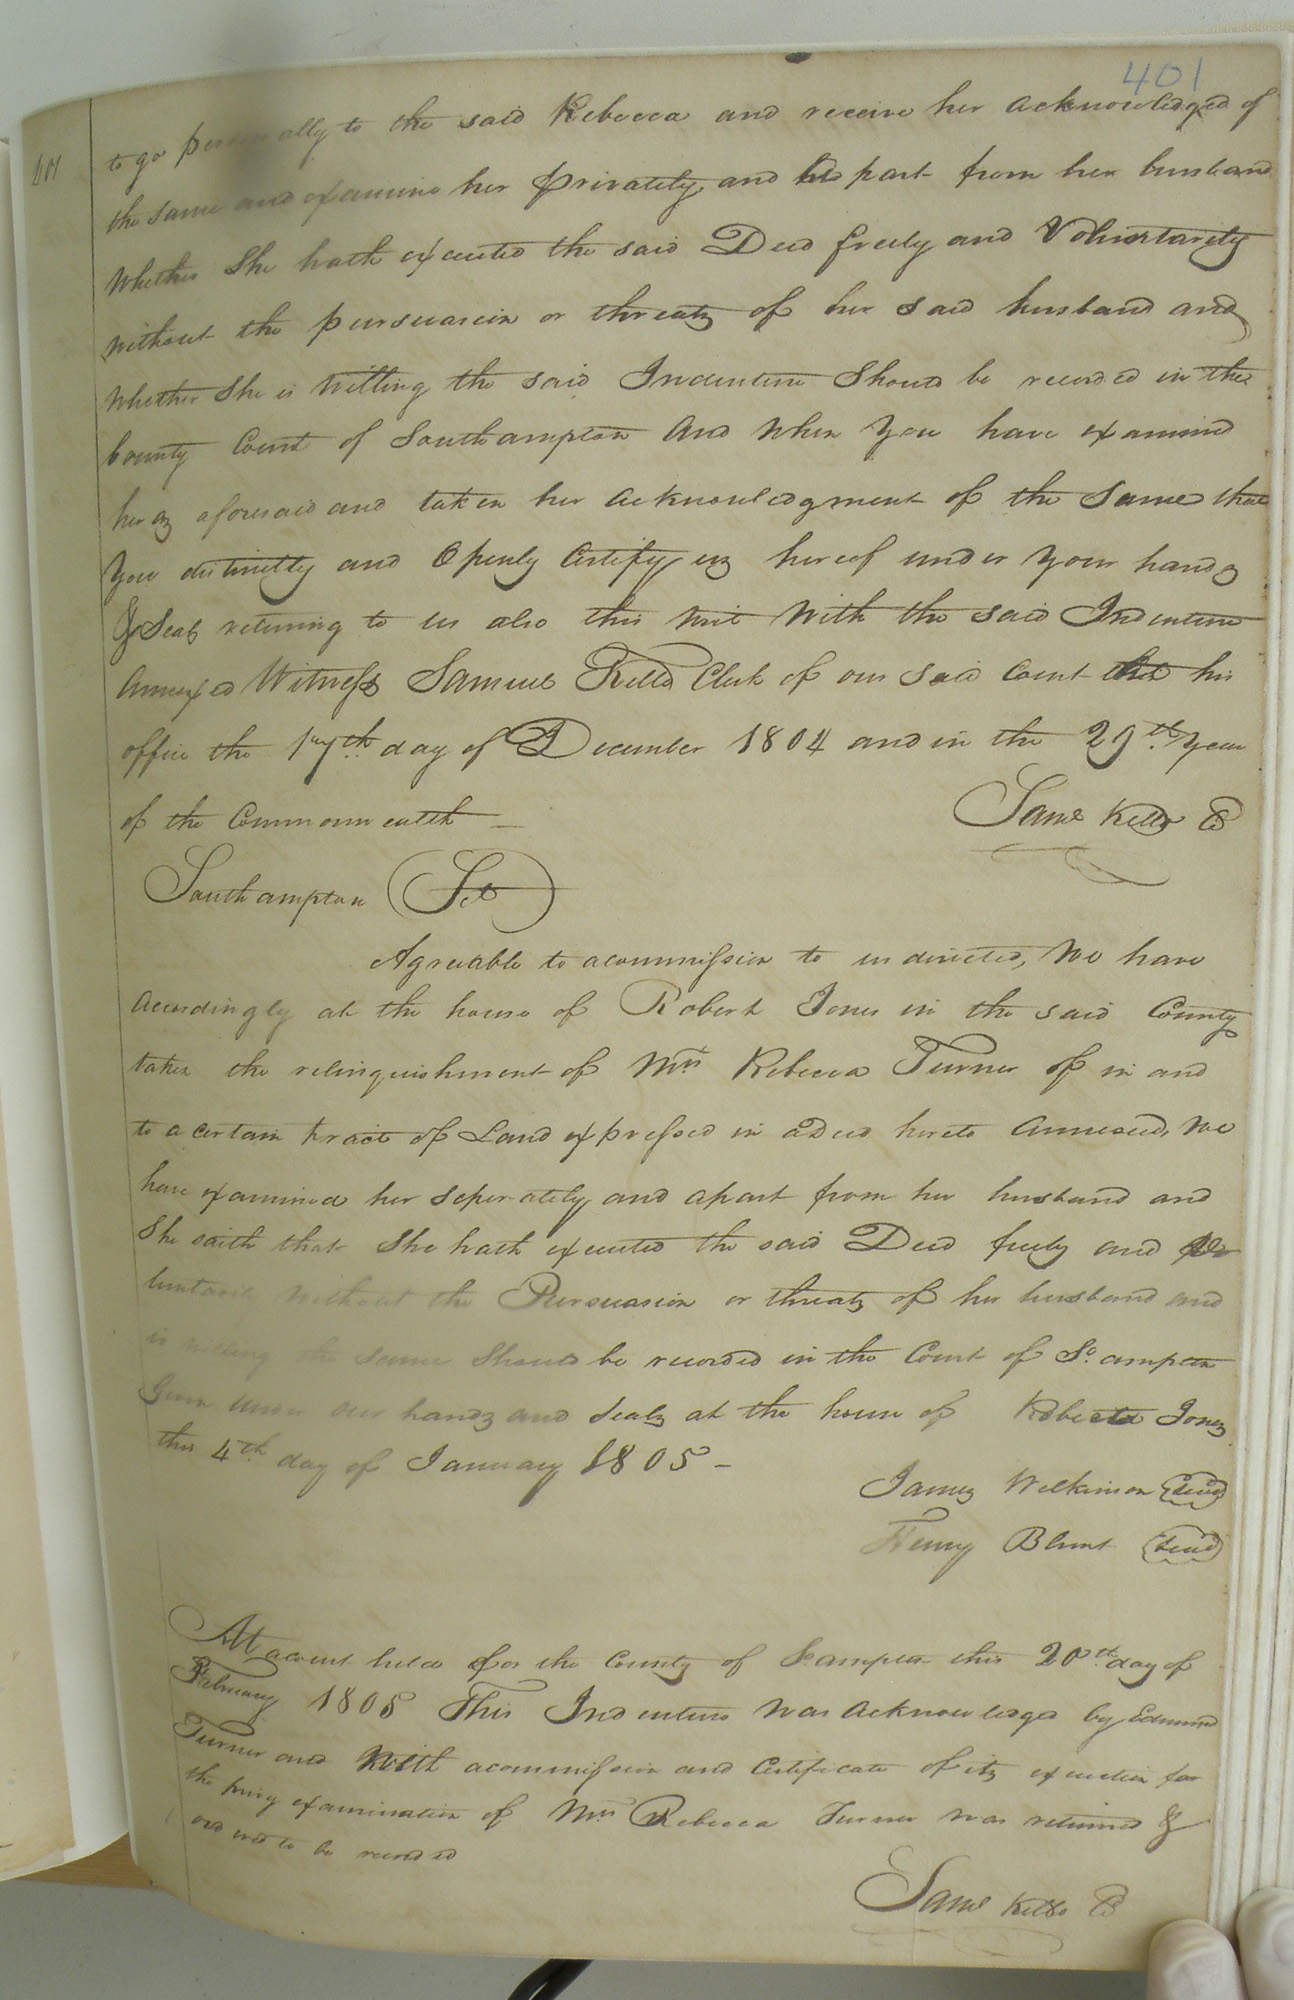 401
401
to go personally to the said Rebecca and receive her acknowledged of
the same and examine her privately and apart from her husband
Whether She hath executed the said Deed freely and Voluntarily
without the pursuasion or threats of her said husband and
Whether She is Willing the said Indenture Should be recorded in the
County Court of Southampton And When you have examined
her as aforesaid and taken her acknowledgment of the Same that
you distinctly and Openly Certify us hereof under your hands
& Seals returning to us also this writ With the said Indenture
Annexed Witness Samuel Kello Clerk of our Said Court at his
office the 17th day of December 1804 and in the 29th year
of the Commonwealth
Saml Kello C
Southampton Sct
Agreeable to a commission to us directed, We have
Accordingly at the house of Robert Jones in the said County
taken the relinquishment of Mrs Rebecca Turner of in and
to a certain tract of Land expressed in a Deed hereto Annexed, We
have examined her seperately and apart from her husband and
She saith that She hath executed the said Deed freely and vo
luntarily Without the Pursuasion or threats of her husband and
is willing the same Should be recorded in the Court of So. ampton
Given under our hands and Seals at the house of Robert Jones
this 4th day of January 1805 -
James Wilkinson Seal
Henry Blunt Seal
At a court held for the County of So. ampton this 20th day of
February 1805 This Indenture was acknowledged by Edmund
Turner and With a commission and Certificate of its execution for
the privy examination of Mrs Rebecca Turner was returned &
ordered to be recorded
Saml Kello C